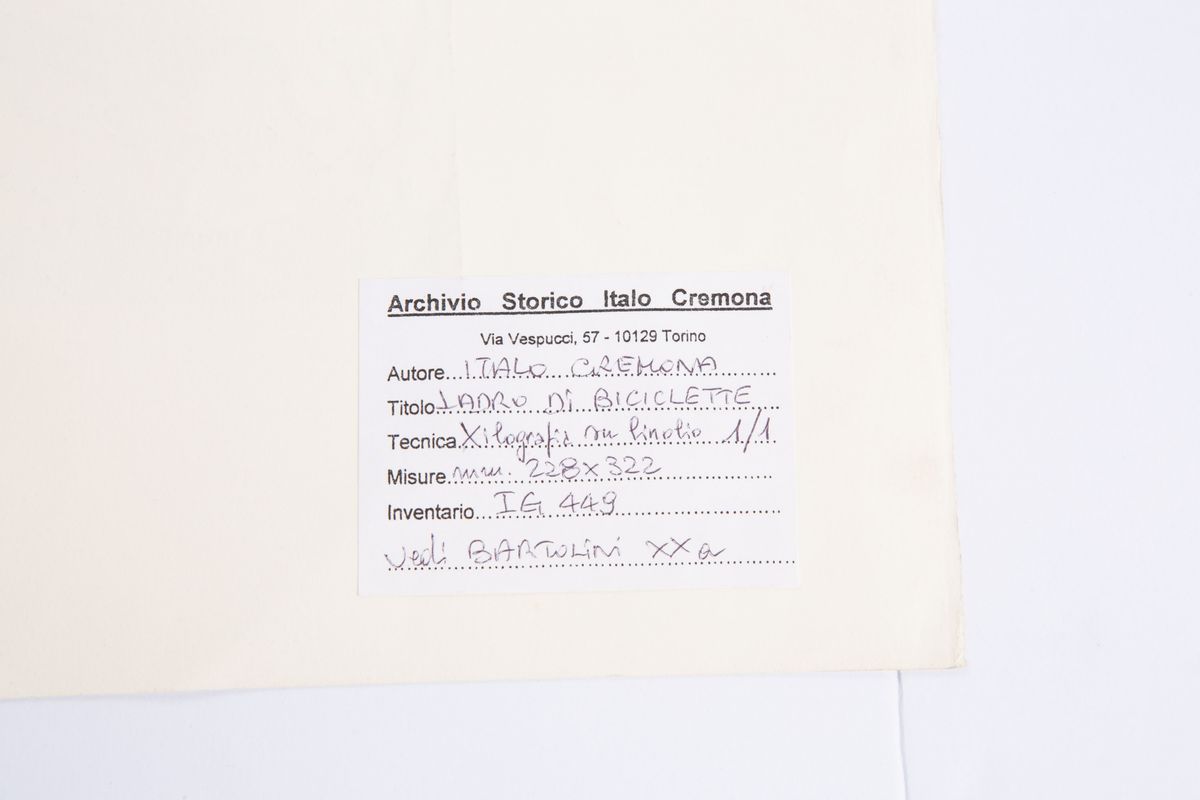 Archivio Storico Italo Cremona
Via Vespucci, 57 - 10129 Torino
Autore...ITALO CREMONA
Titolo LADRO DI BICICLETTE
Tecnica Xilografia su linolio 1/1
Misure mm. 228x322
Inventario...IG 449
Vedi BARTOLINI XX a